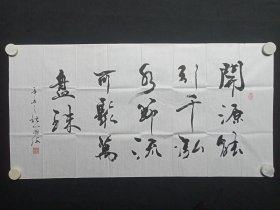 開源能
引千泓
水節流
可聚萬
盘珠